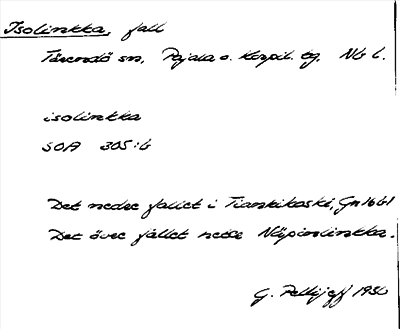 Isolinkka, fall
Tärendö sn, Pajala o. Korpil. tg. Nb l.
isolinkka
SOA 305:6
Det nedre fallet i Tiankikoski, Gn 1661
Det övre fallet heter Näpinlinkka.
G. Pellijeff 1950